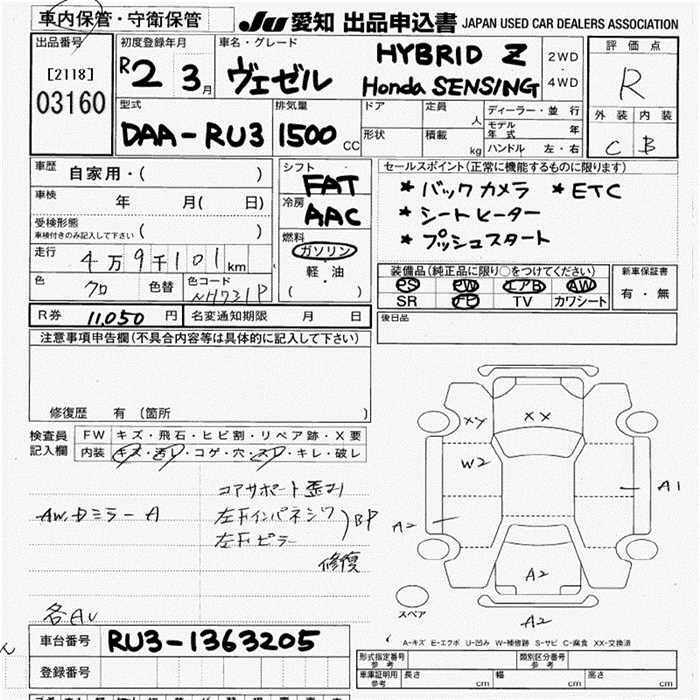 車内保管・守衛保管
JU 愛知 出品申込書 JAPAN USED CAR DEALERS ASSOCIATION
出品番号
[2118]
03160
初度登録年月
R2 3月
車名・グレード
ヴェゼル
HYBRID Z
Honda SENSING
2WD
・
4WD
評価点
R
外装 内装
C B
型式
DAA-RU3
排気量
1500 CC
ドア
形状
定員 人
積載 kg
ディーラー・並行
モデル年式 年
ハンドル 左・右
車歴 自家用・( )
車検 年 月( 日)
受検形態
車検付きのみ記入して下さい ( )
走行 4万9千101km
色 クロ 色替 色コード NH731P
シフト
FAT
冷房
AAC
燃料
ガソリン
・
軽油
( ・ )
セールスポイント(正常に機能するものに限ります)
★バックカメラ ★ETC
★シートヒーター
★プッシュスタート
装備品(純正品に限り○をつけてください)
PS PW エアB AW
SR TV カワシート
新車保証書
有・無
R券 11,050 円 名変通知期限 月 日
後日品
注意事項申告欄(不具合内容等は具体的に記入して下さい)
修復歴 有(箇所 )
検査員
記入欄
FW キズ・飛石・ヒビ割・リペア跡・X要
内装 キズ・汚レ・コゲ・穴・スレ・キレ・破レ
コアサポート歪ミ
AW.Dミラー A
左Fインパネシワ
左Fピラー
BP
修復
各AU
XY
XX
W2
A1
A2
A2
A2
スペア
A-キズ E-エクボ U-凹み W-補修跡 S-サビ C-腐食 XX-交換済
車台番号 RU3-1363205
登録番号
形式指定番号
参考
類別区分番号
参考
車庫証明用
参考
長さ cm 幅 cm 高さ cm